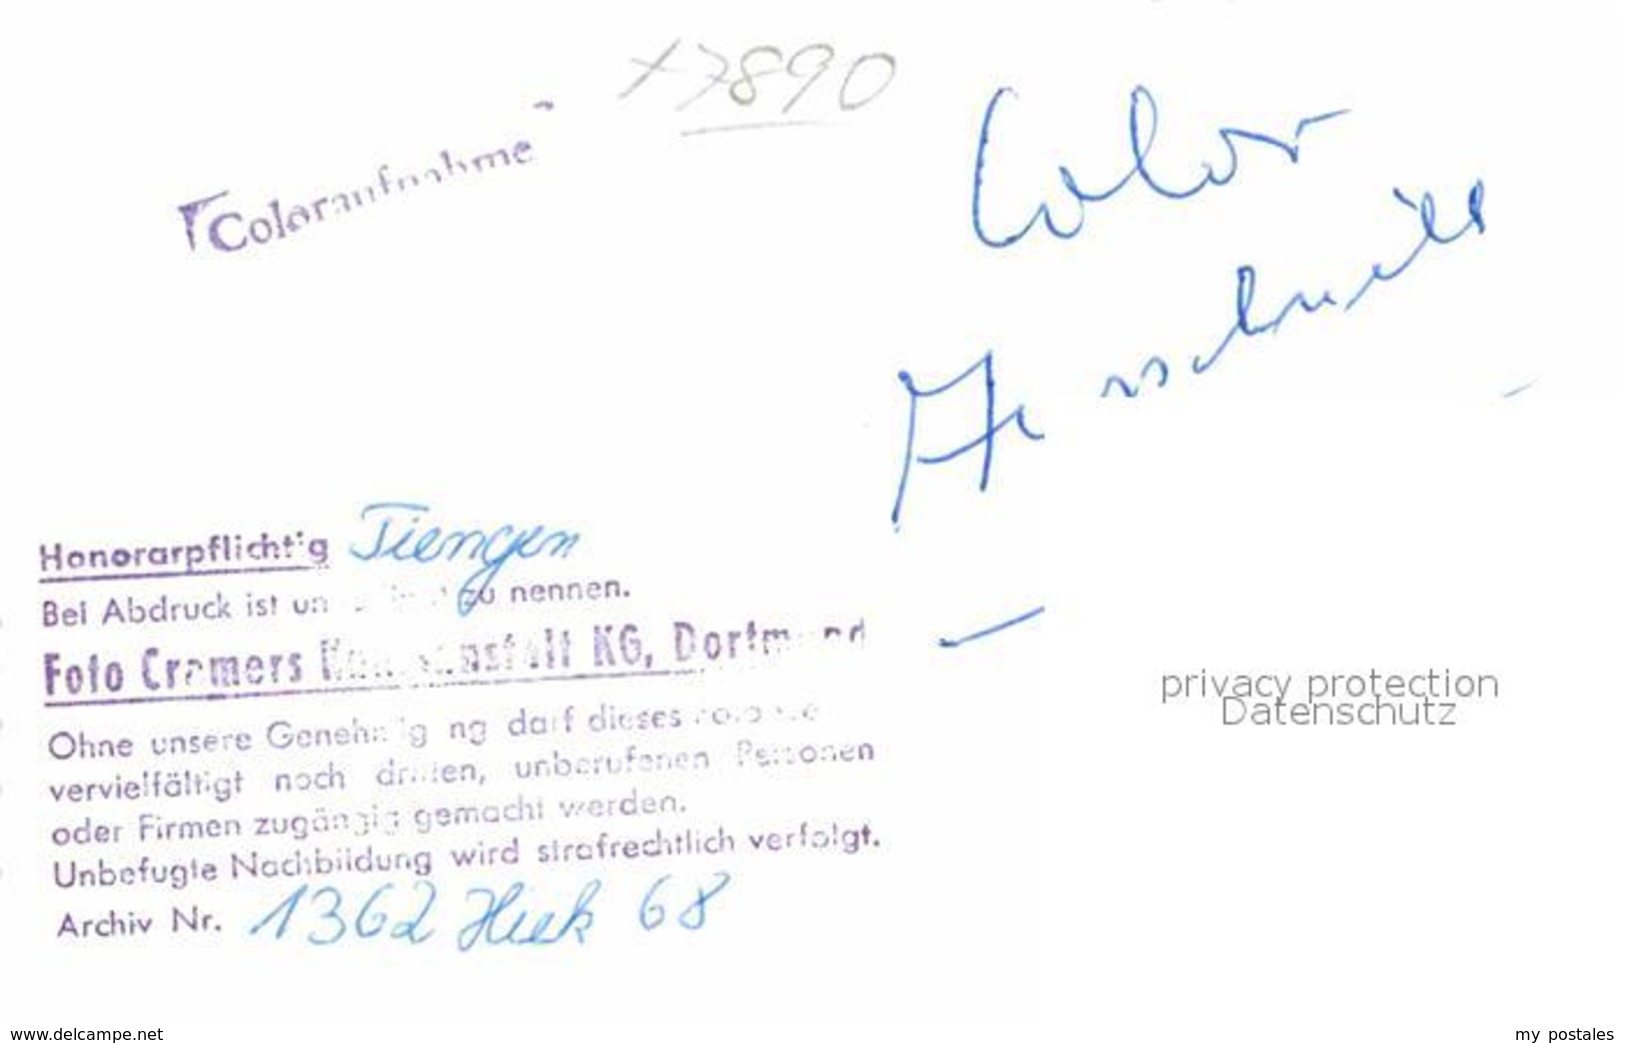 x7890
Coloraufnahme
Color
Ausschnitt
Honorarpflichtig Tiengen
Bei Abdruck ist un zu nennen.
Foto Cramers KG, Dortmund
Ohne unsere Genehmigung darf dieses
vervielfältigt noch dritten, unberufenen Personen
oder Firmen zugängig gemacht werden.
Unbefugte Nachbildung wird strafrechtlich verfolgt.
Archiv Nr. 1362 68
privacy protection
Datenschutz
www.delcampe.net
my postales